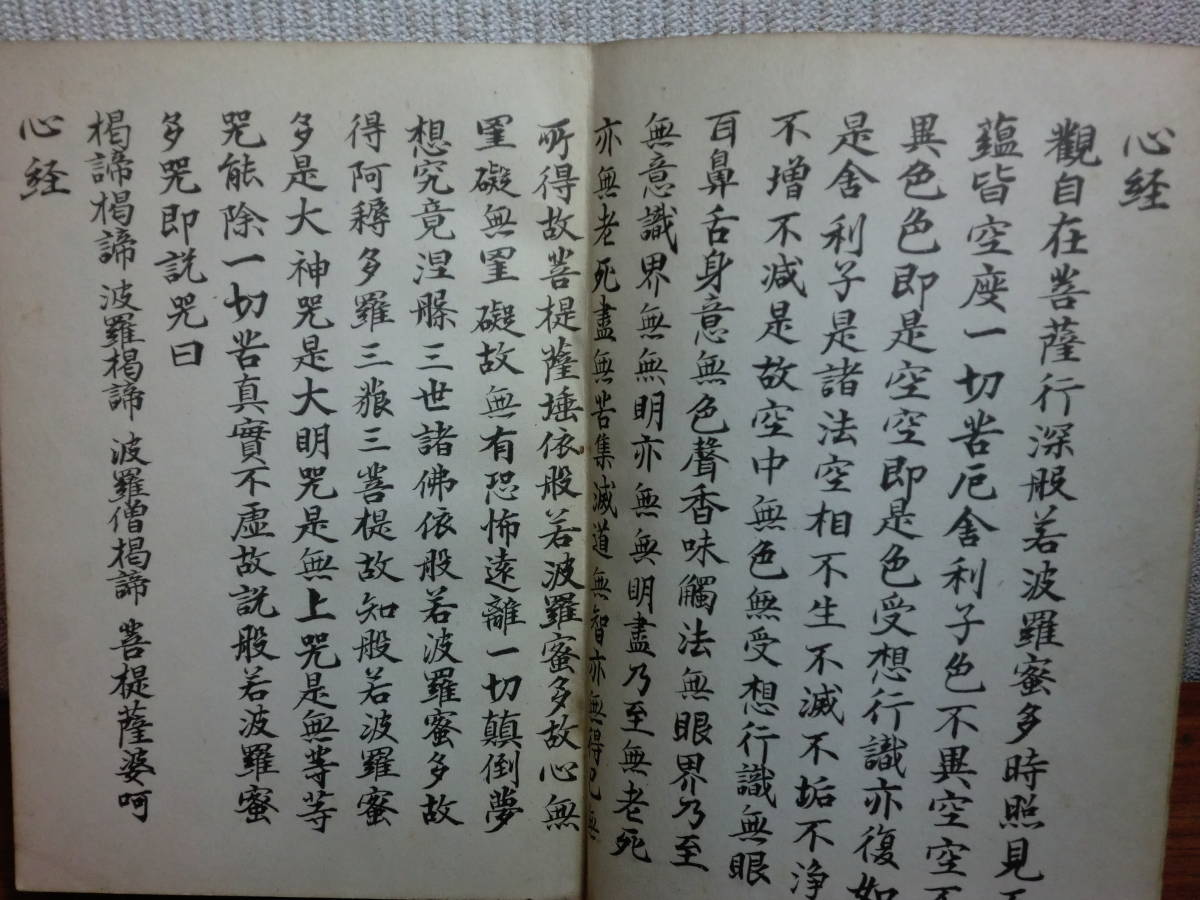 心経
觀自在菩薩行深般若波羅蜜多時照見
蘊皆空度一切苦厄舍利子色不異空空不
異色色即是空空即是色受想行識亦復如
是舍利子是諸法空相不生不滅不垢不浄
不増不減是故空中無色無受想行識無眼
耳鼻舌身意無色聲香味觸法無眼界乃至
無意識界無無明亦無無明盡乃至無老死
亦無老死盡無苦集滅道無智亦無得以無
所得故菩提薩埵依般若波羅蜜多故心無
罣礙無罣礙故無有恐怖遠離一切顛倒夢
想究竟涅槃三世諸佛依般若波羅蜜多故
得阿耨多羅三藐三菩提故知般若波羅蜜
多是大神咒是大明咒是無上咒是無等等
咒能除一切苦真實不虛故説般若波羅蜜
多咒即説咒曰
掲諦掲諦 波羅掲諦 波羅僧掲諦 菩提薩婆呵
心経